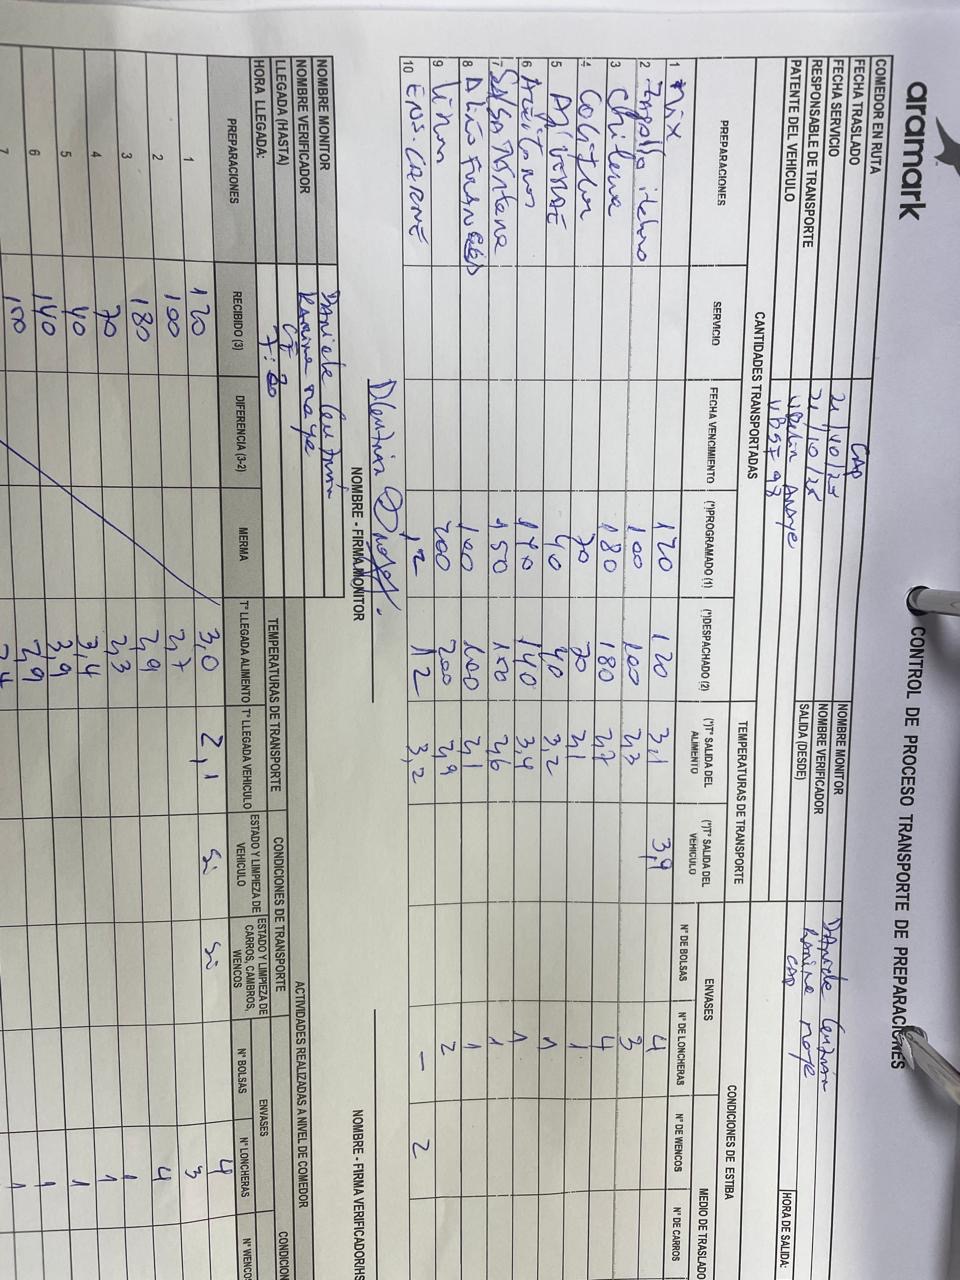 aramark
CONTROL DE PROCESO TRANSPORTE DE PREPARACIONES
COMEDOR EN RUTA CAP
FECHA TRASLADO 21/10/25 NOMBRE MONITOR Daniela
FECHA SERVICIO 21/10/25 NOMBRE VERIFICADOR Karina Moya
RESPONSABLE DE TRANSPORTE Araya SALIDA (DESDE) CAP HORA DE SALIDA:
PATENTE DEL VEHICULO
CANTIDADES TRANSPORTADAS TEMPERATURAS DE TRANSPORTE CONDICIONES DE ESTIBA
ENVASES MEDIO DE TRASLADO
PREPARACIONES SERVICIO FECHA VENCIMIENTO (*)PROGRAMADO (1) (*)DESPACHADO (2) (*)T° SALIDA DEL ALIMENTO (*)T° SALIDA DEL VEHICULO N° DE BOLSAS N° DE LONCHERAS N° DE WENCOS N° DE CARROS
1 Mix 120 120 3,1 3,9 4
2 Zapallo italiano 100 100 2,3 3
3 Chilena 180 180 2,7 4
4 70 70 2,1 1
5 40 40 3,2 1
6 Aceitunas 140 140 3,4 1
7 Salsa Tártara 150 2,6 1
8 Aliño Francés 100 100 2,1 1
9 Limon 200 200 2,9 2
10 Ens. Carne 12 12 3,2 - 2
NOMBRE - FIRMA MONITOR NOMBRE - FIRMA VERIFICADOR/HS
NOMBRE MONITOR Daniela
NOMBRE VERIFICADOR Karina Moya
LLEGADA (HASTA)
HORA LLEGADA:
ACTIVIDADES REALIZADAS A NIVEL DE COMEDOR
TEMPERATURAS DE TRANSPORTE CONDICIONES DE TRANSPORTE ENVASES
PREPARACIONES RECIBIDO (3) DIFERENCIA (3-2) MERMA T° LLEGADA ALIMENTO T° LLEGADA VEHICULO ESTADO Y LIMPIEZA DE VEHICULO ESTADO Y LIMPIEZA DE CARROS, CAMBROS, WENCOS N° BOLSAS N° LONCHERAS
1 120 3,0 2,1 Si Si 4
2 100 2,7 3
3 180 2,9 4
4 70 2,3 1
5 40 3,4 1
6 140 3,9 1
7 2,9 1